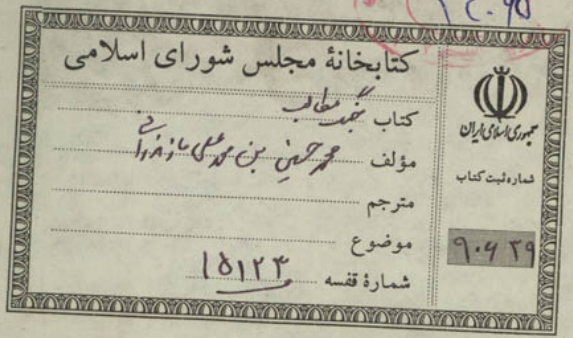 کتابخانهٔ مجلس شورای اسلامی
کتاب جنگ مطالب
مؤلف محمد حسین بن محمد علی مازندرانی
مترجم
موضوع
شمارهٔ قفسه ۱۵۱۲۳
جمهوری اسلامی ایران
شماره ثبت کتاب
۹۰۶۲۹